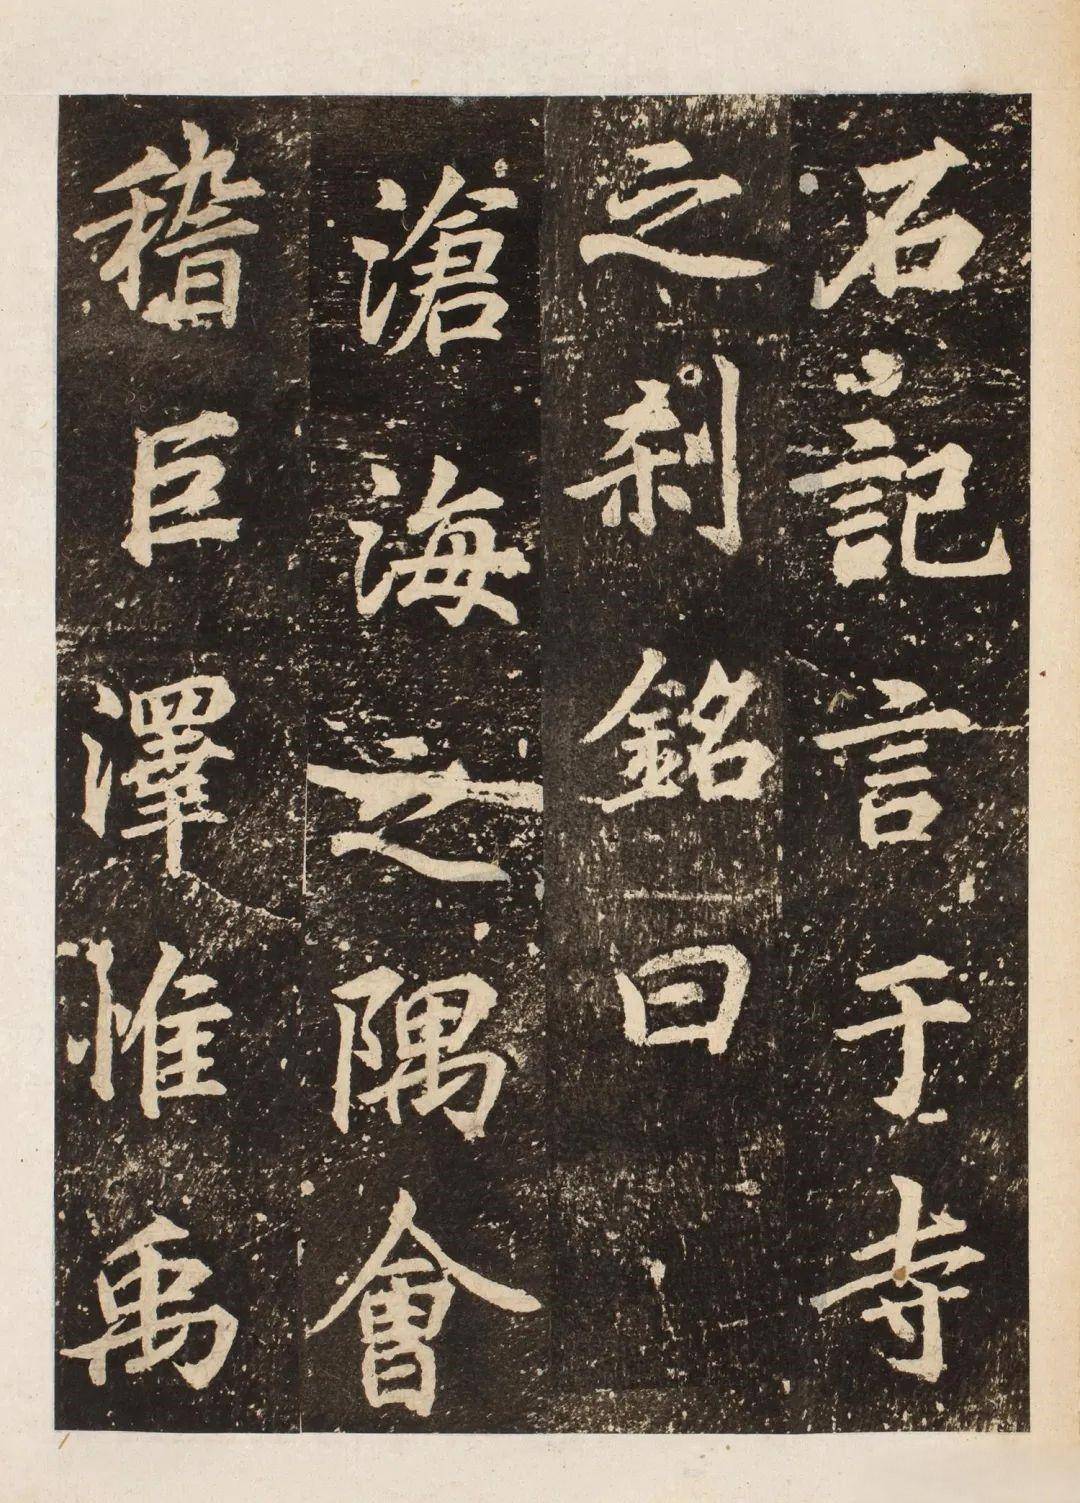 石記言于寺
之刹銘曰
滄海之隅會
稽巨澤惟禹